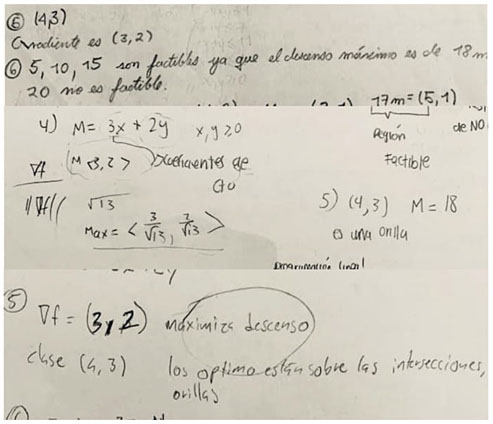 ⑥ (4,3)
Gradiente es (3,2)
⑥ 5, 10, 15 son factibles ya que el descenso máximo es de 18m
20 no es factible.
17m = (5,1)
Región
Factible
de NO
4) M = 3x + 2y x, y ≥ 0
∇f (M <3,2> > coeficientes de
cto
||∇f|| √13
Max = < 3/√13, 2/√13 >
5) (4,3) M = 18
o una orilla
Programación lineal
⑤ ∇f = (3,2) maximiza descenso
clase (4,3) los optimo están sobre las intersecciones,
orillas